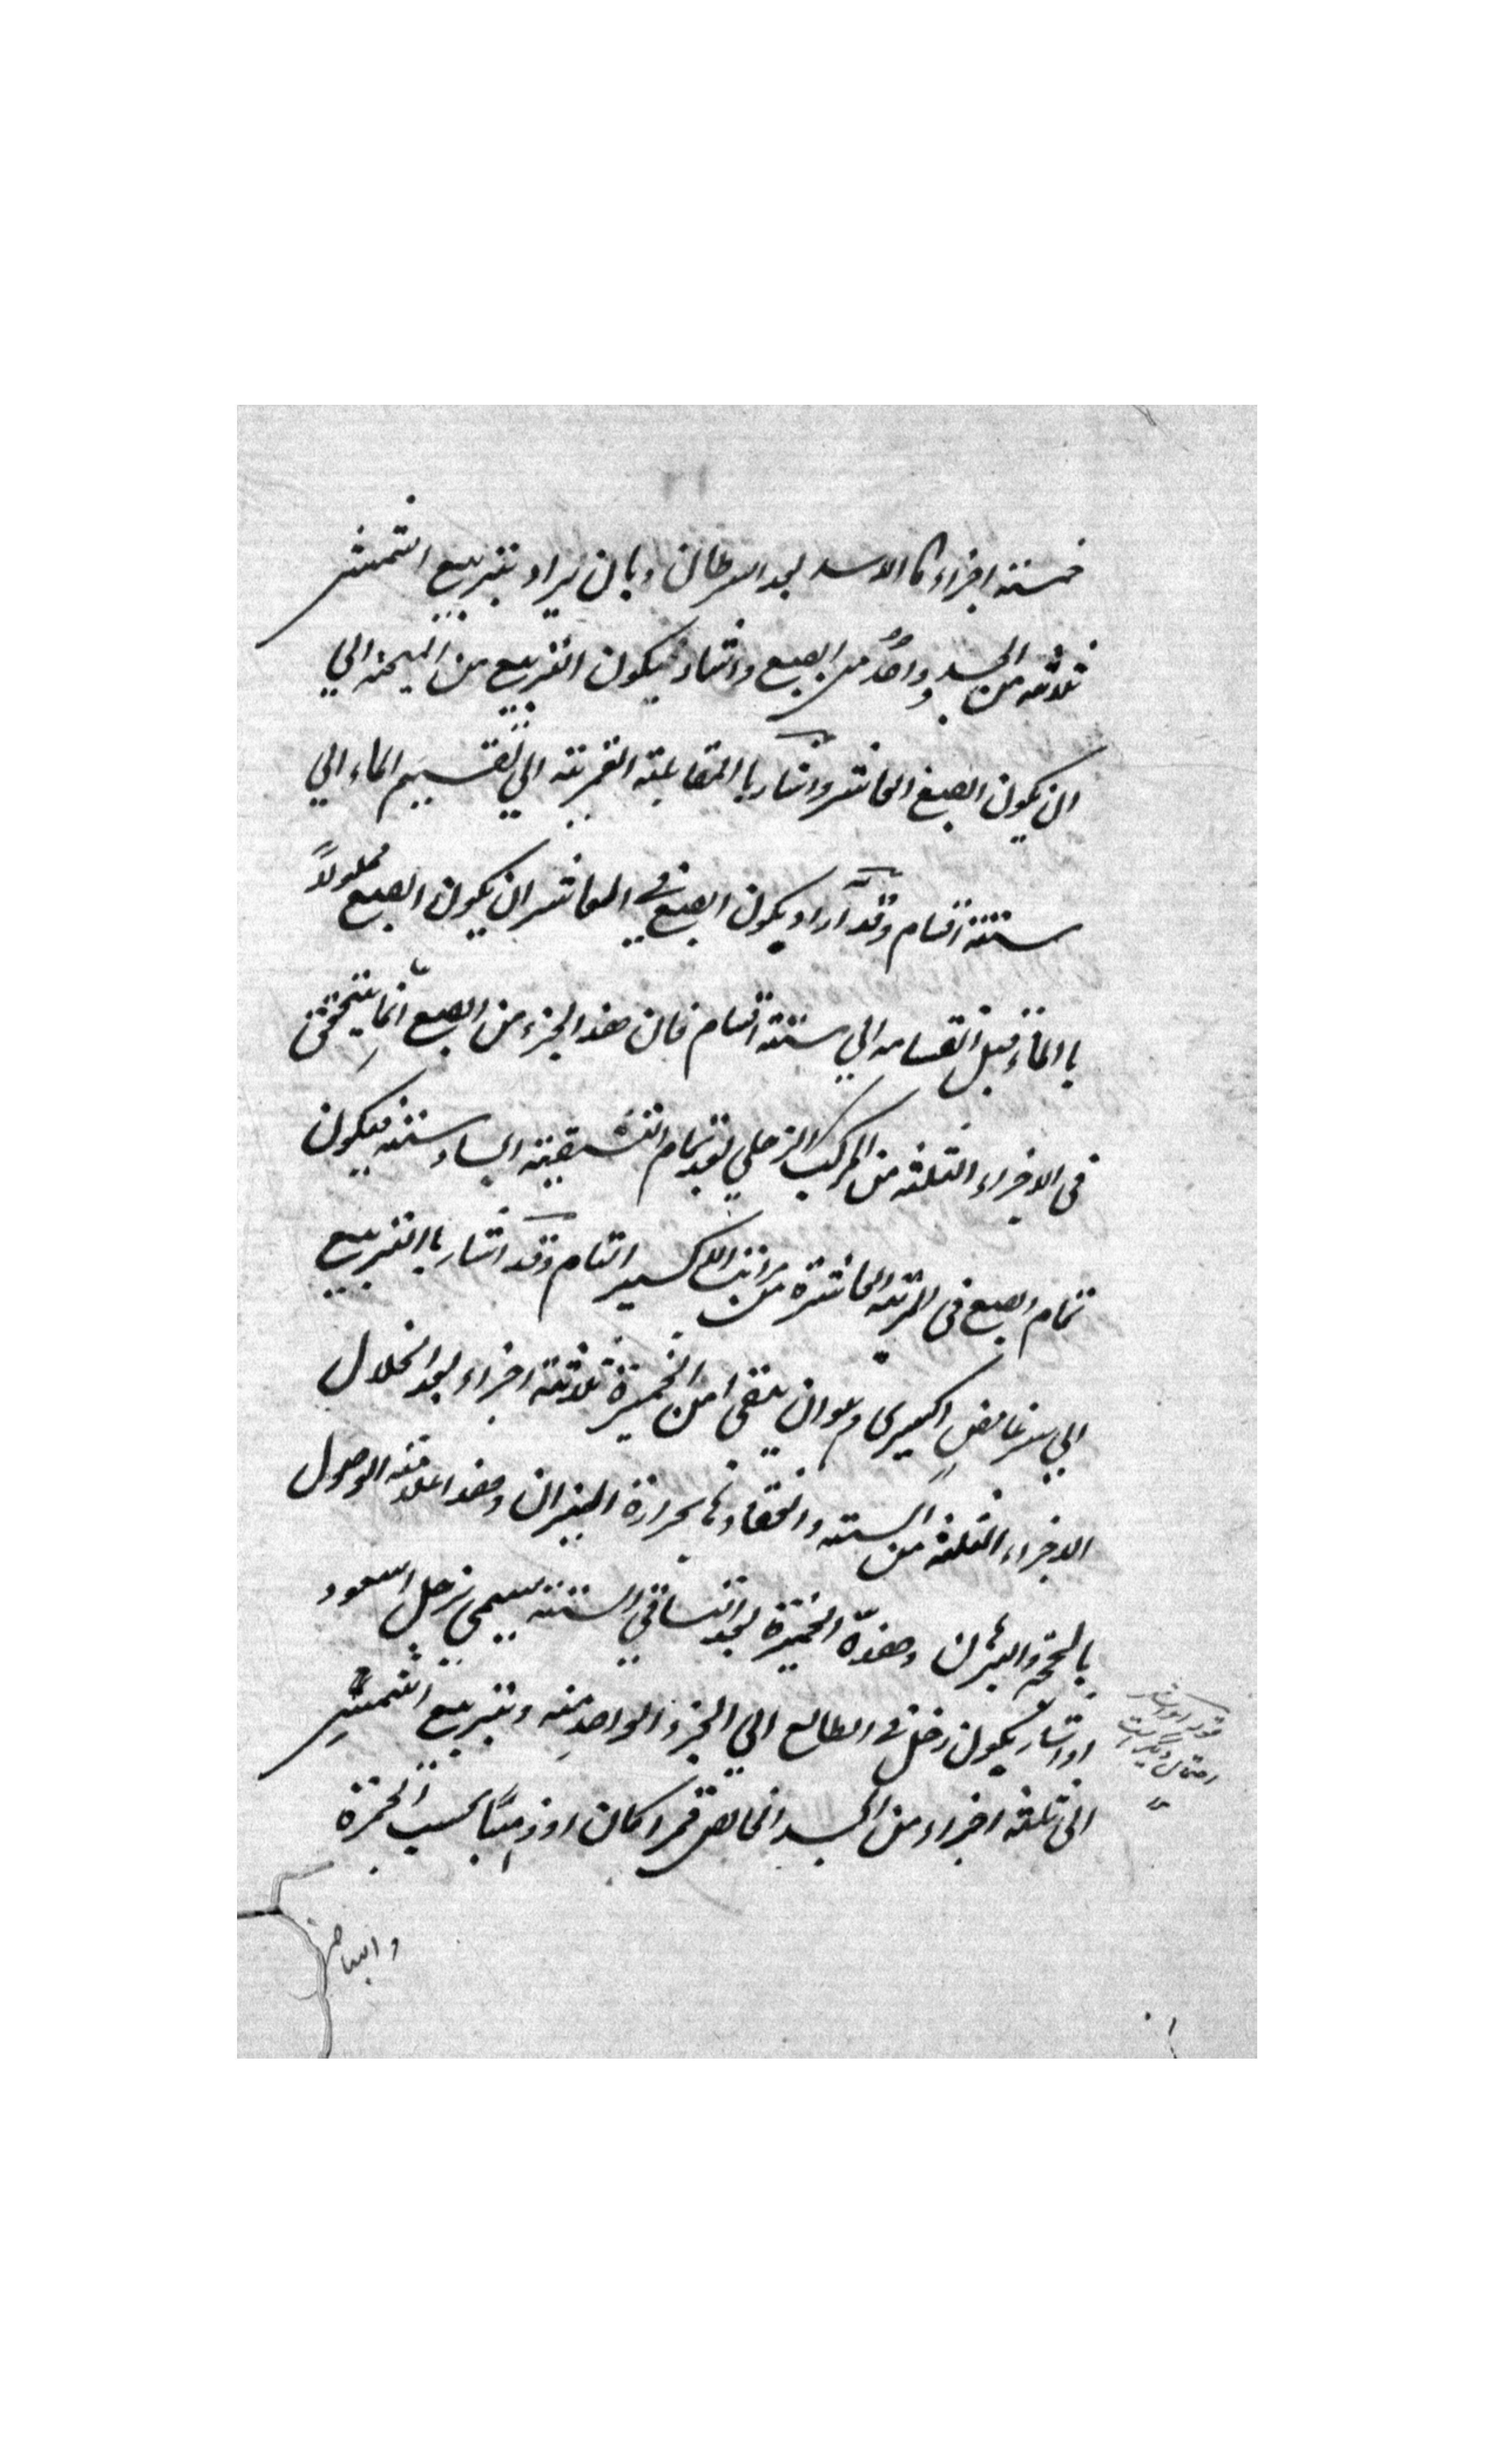 خمسته اجزاء كالاسد بعد السرطان وبان يراد بتربيع الشمش
ثلاثه من الجسد وواحدٌ من الصبع واشار بكون التربيع من اليمنه الي
ان يكون الصبغ العاشر واشار باالمقابلته القمريته الي تقسيم الماء الي
ستته اقسام وقد اراد بكون الصبغ في العاشر ان يكون الصبع محلولاً
باالماء قبل انقسامه الي ستته اقسام فان هذا الجزء من الصبع انما يتحقق
فى الاجزاء الثلثه من المركب الزحلي بعد تمام التشقيته السادسته فيكون
تمام الصبع فى المرتبه العاشرة من مراتب الاكسير التام وقد اشار باالتربيع
الي سر غامض اكسيرى وهو ان يلقى من الخميرة ثلاثته اجزاء بعد انحلال
الاجزاء الثلثه من السته وانعقادها بحرارة الميزان وهذا علامته الوصول
بالحجة والبرهان وهذة الخميرة بعد التساقي الستته يسمى زحل السعود
او اشار بكون زحل فى الطالع الي الجزء الواحد منه وبتربيع الشمش
الى ثلثه اجزاء من الجسد الخالص قمرا كان او ذهبًا بحسب الخمرة